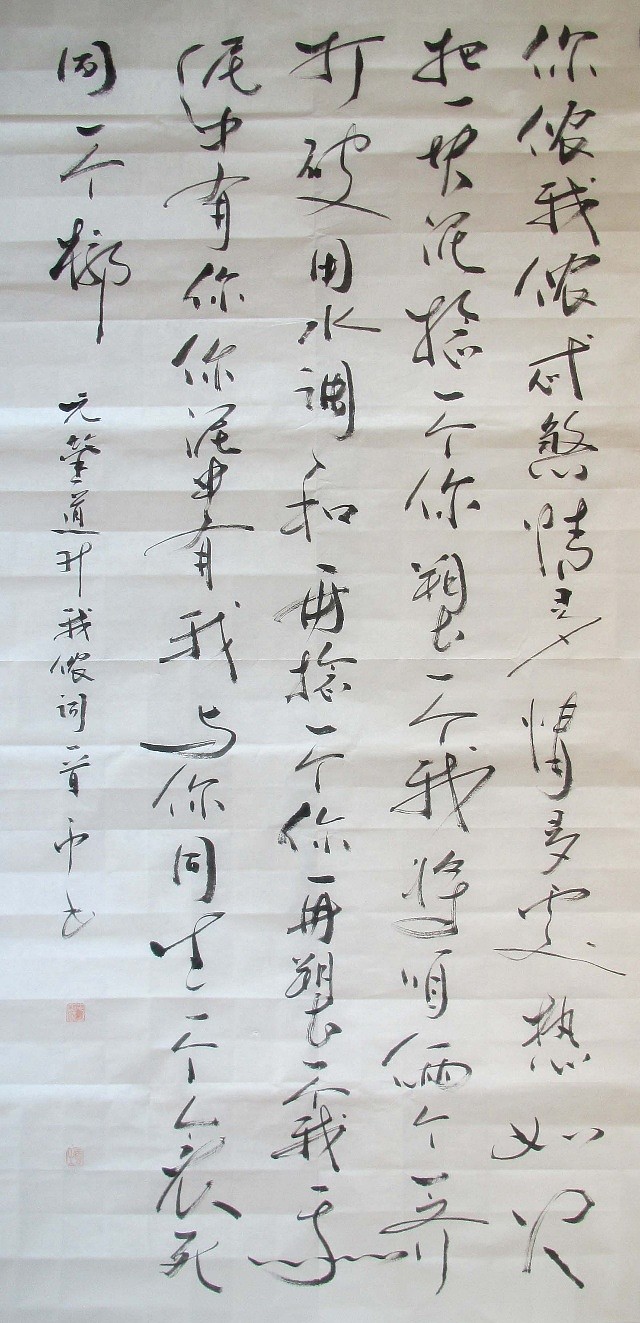 你侬我侬忒煞情多情多處热如火
把一块泥捻一个你塑一个我將咱俩个一齐
打破用水调和再捻一个你再塑一个我我
泥中有你你泥中有我与你同生一个衾死
同一个椁
元管道升我侬词一首 书